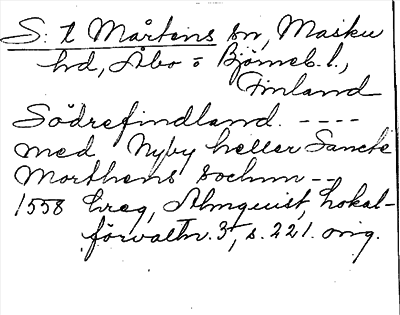 S:t Mårtens sn, Masku
hd, Åbo o Björneb. l.,
Finland
Södrefindland. ----
med Nyby heller Sancte
Morthens sochnn --
1558 breg, Almquist, Lokal-
förvaltn. 3, s. 221. orig.